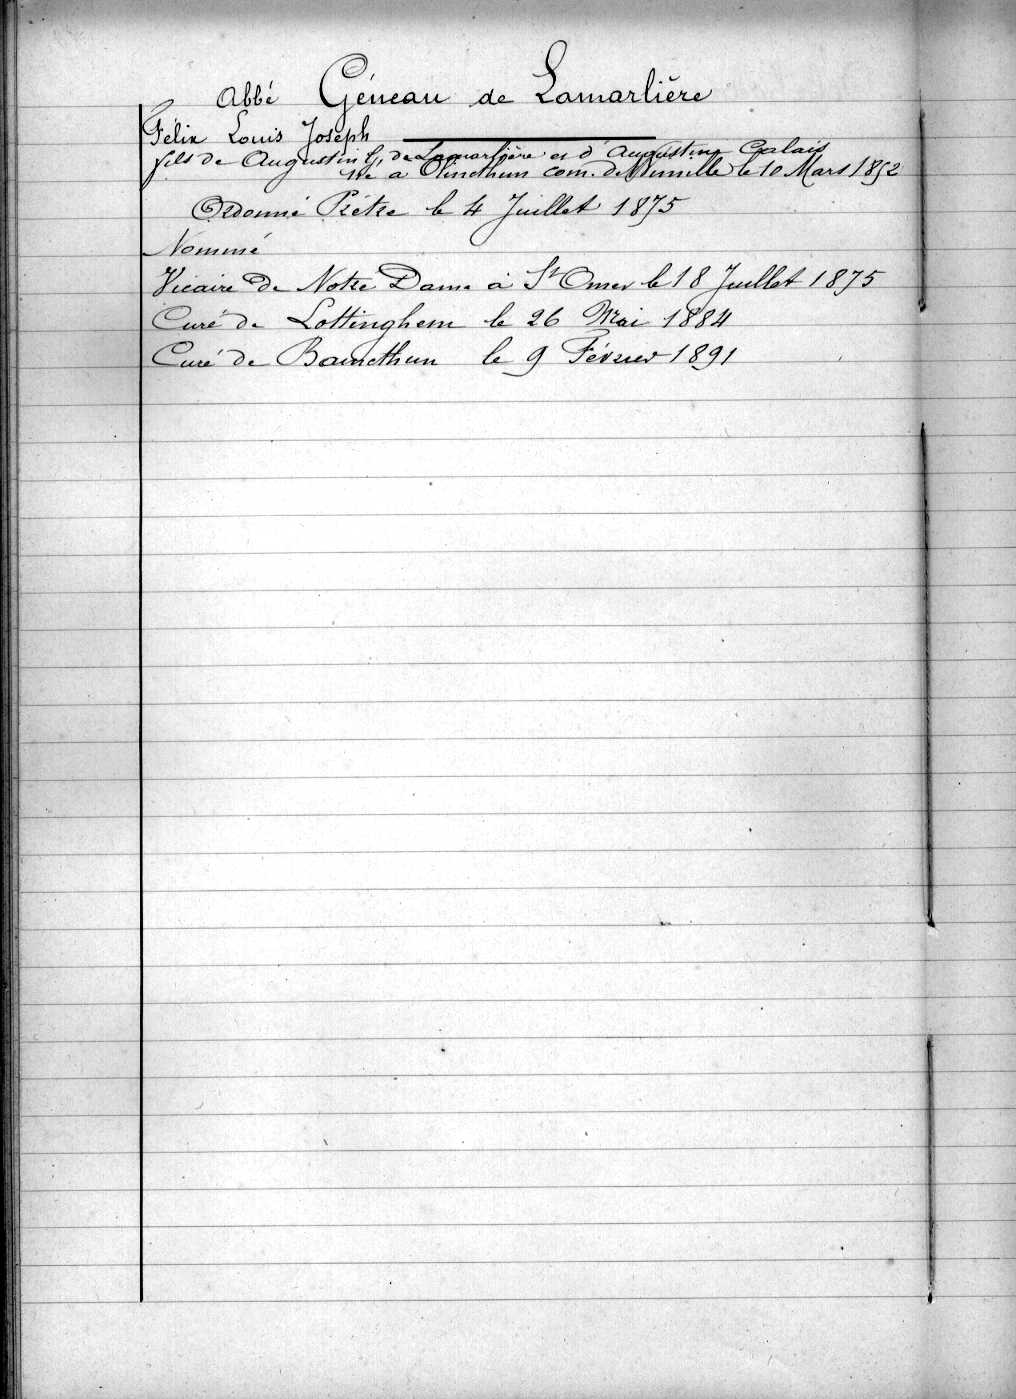 Abbé Géneau de Lamarlière
Félix Louis Joseph
fils de Augustin G, de Lamarlière et d'Augustine Calais
né à Olincthun com. de Wimille le 10 Mars 1852
Ordonné Prêtre le 4 Juillet 1875
Nommé
Vicaire de Notre Dame à St Omer le 18 Juillet 1875
Curé de Lottinghem le 26 Mai 1884
Curé de Baincthun le 9 Février 1891